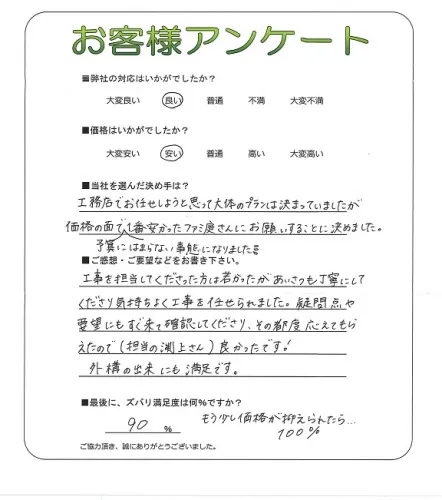 お客様アンケート
■弊社の対応はいかがでしたか？
大変良い 良い 普通 不満 大変不満
■価格はいかがでしたか？
大変安い 安い 普通 高い 大変高い
■当社を選んだ決め手は？
工務店でお任せしようと思って大体のプランは決まっていましたが
価格の面で1番安かったファミ庭さんにお願いすることに決めました。
予算にはまらない事態になりました
■ご感想・ご要望などをお書き下さい。
工事を担当してくださった方は若かったがあいさつも丁寧にして
くださり気持ちよく工事を任せられました。疑問点や
要望にもすぐ来て確認してくださり、その都度応えてもら
えたので(担当の渕上さん)良かったです!
外構の出来にも満足です。
■最後に、ズバリ満足度は何%ですか？
90 %
もう少し価格が抑えられたら...
100%
ご協力頂き、誠にありがとうございました。